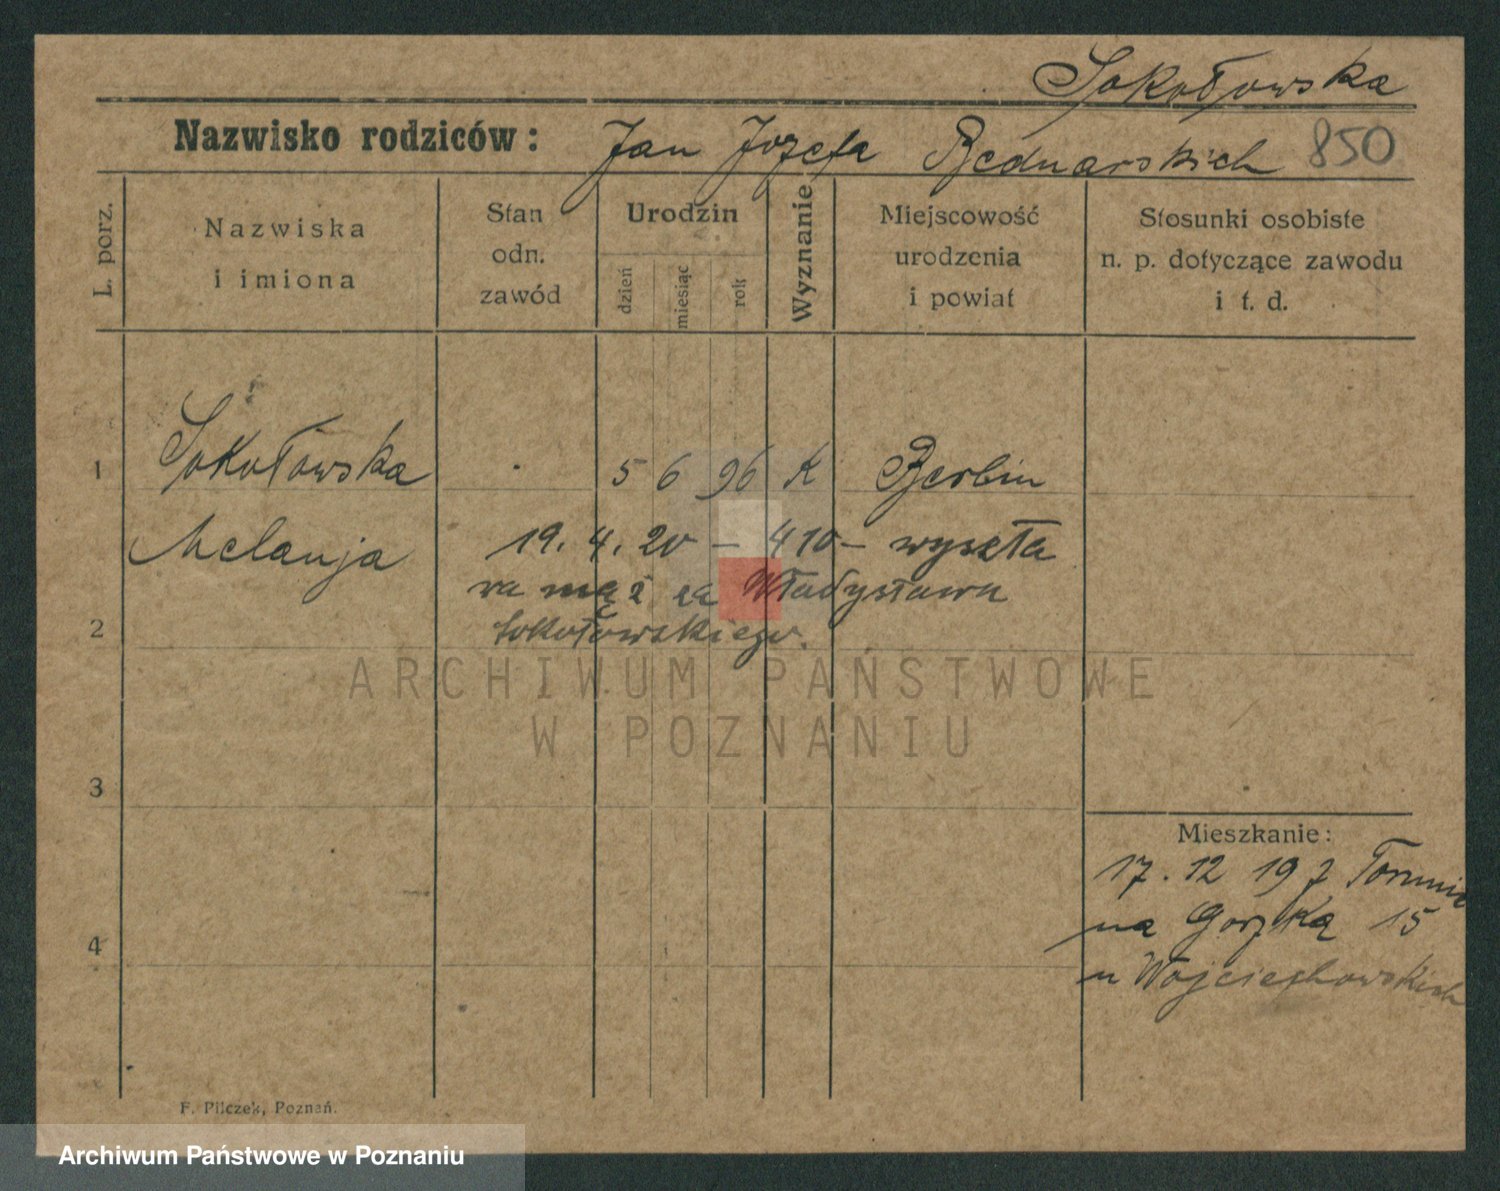 Sokołowska
Nazwisko rodziców: Jan Jozefa Bednarskich 850
L. porz.
Nazwiska
i imiona
Stan
odn.
zawód
Urodzin
dzień
miesiąc
rok
Wyznanie
Miejscowość
urodzenia
i powiat
Stosunki osobiste
n. p. dotyczące zawodu
i t. d.
1 Sokołowska 5 6 96 K Berlin
Melanja 19. 4. 20 – 410 – wyszła
za mąż za Władysława
2 Sokołowskiego.
ARCHIWUM PAŃSTWOWE
W POZNANIU
3
Mieszkanie:
17. 12 19 z
na Gorzką 15
4
u Wojciechowskich
F. Pilczek, Poznań.
Archiwum Państwowe w Poznaniu